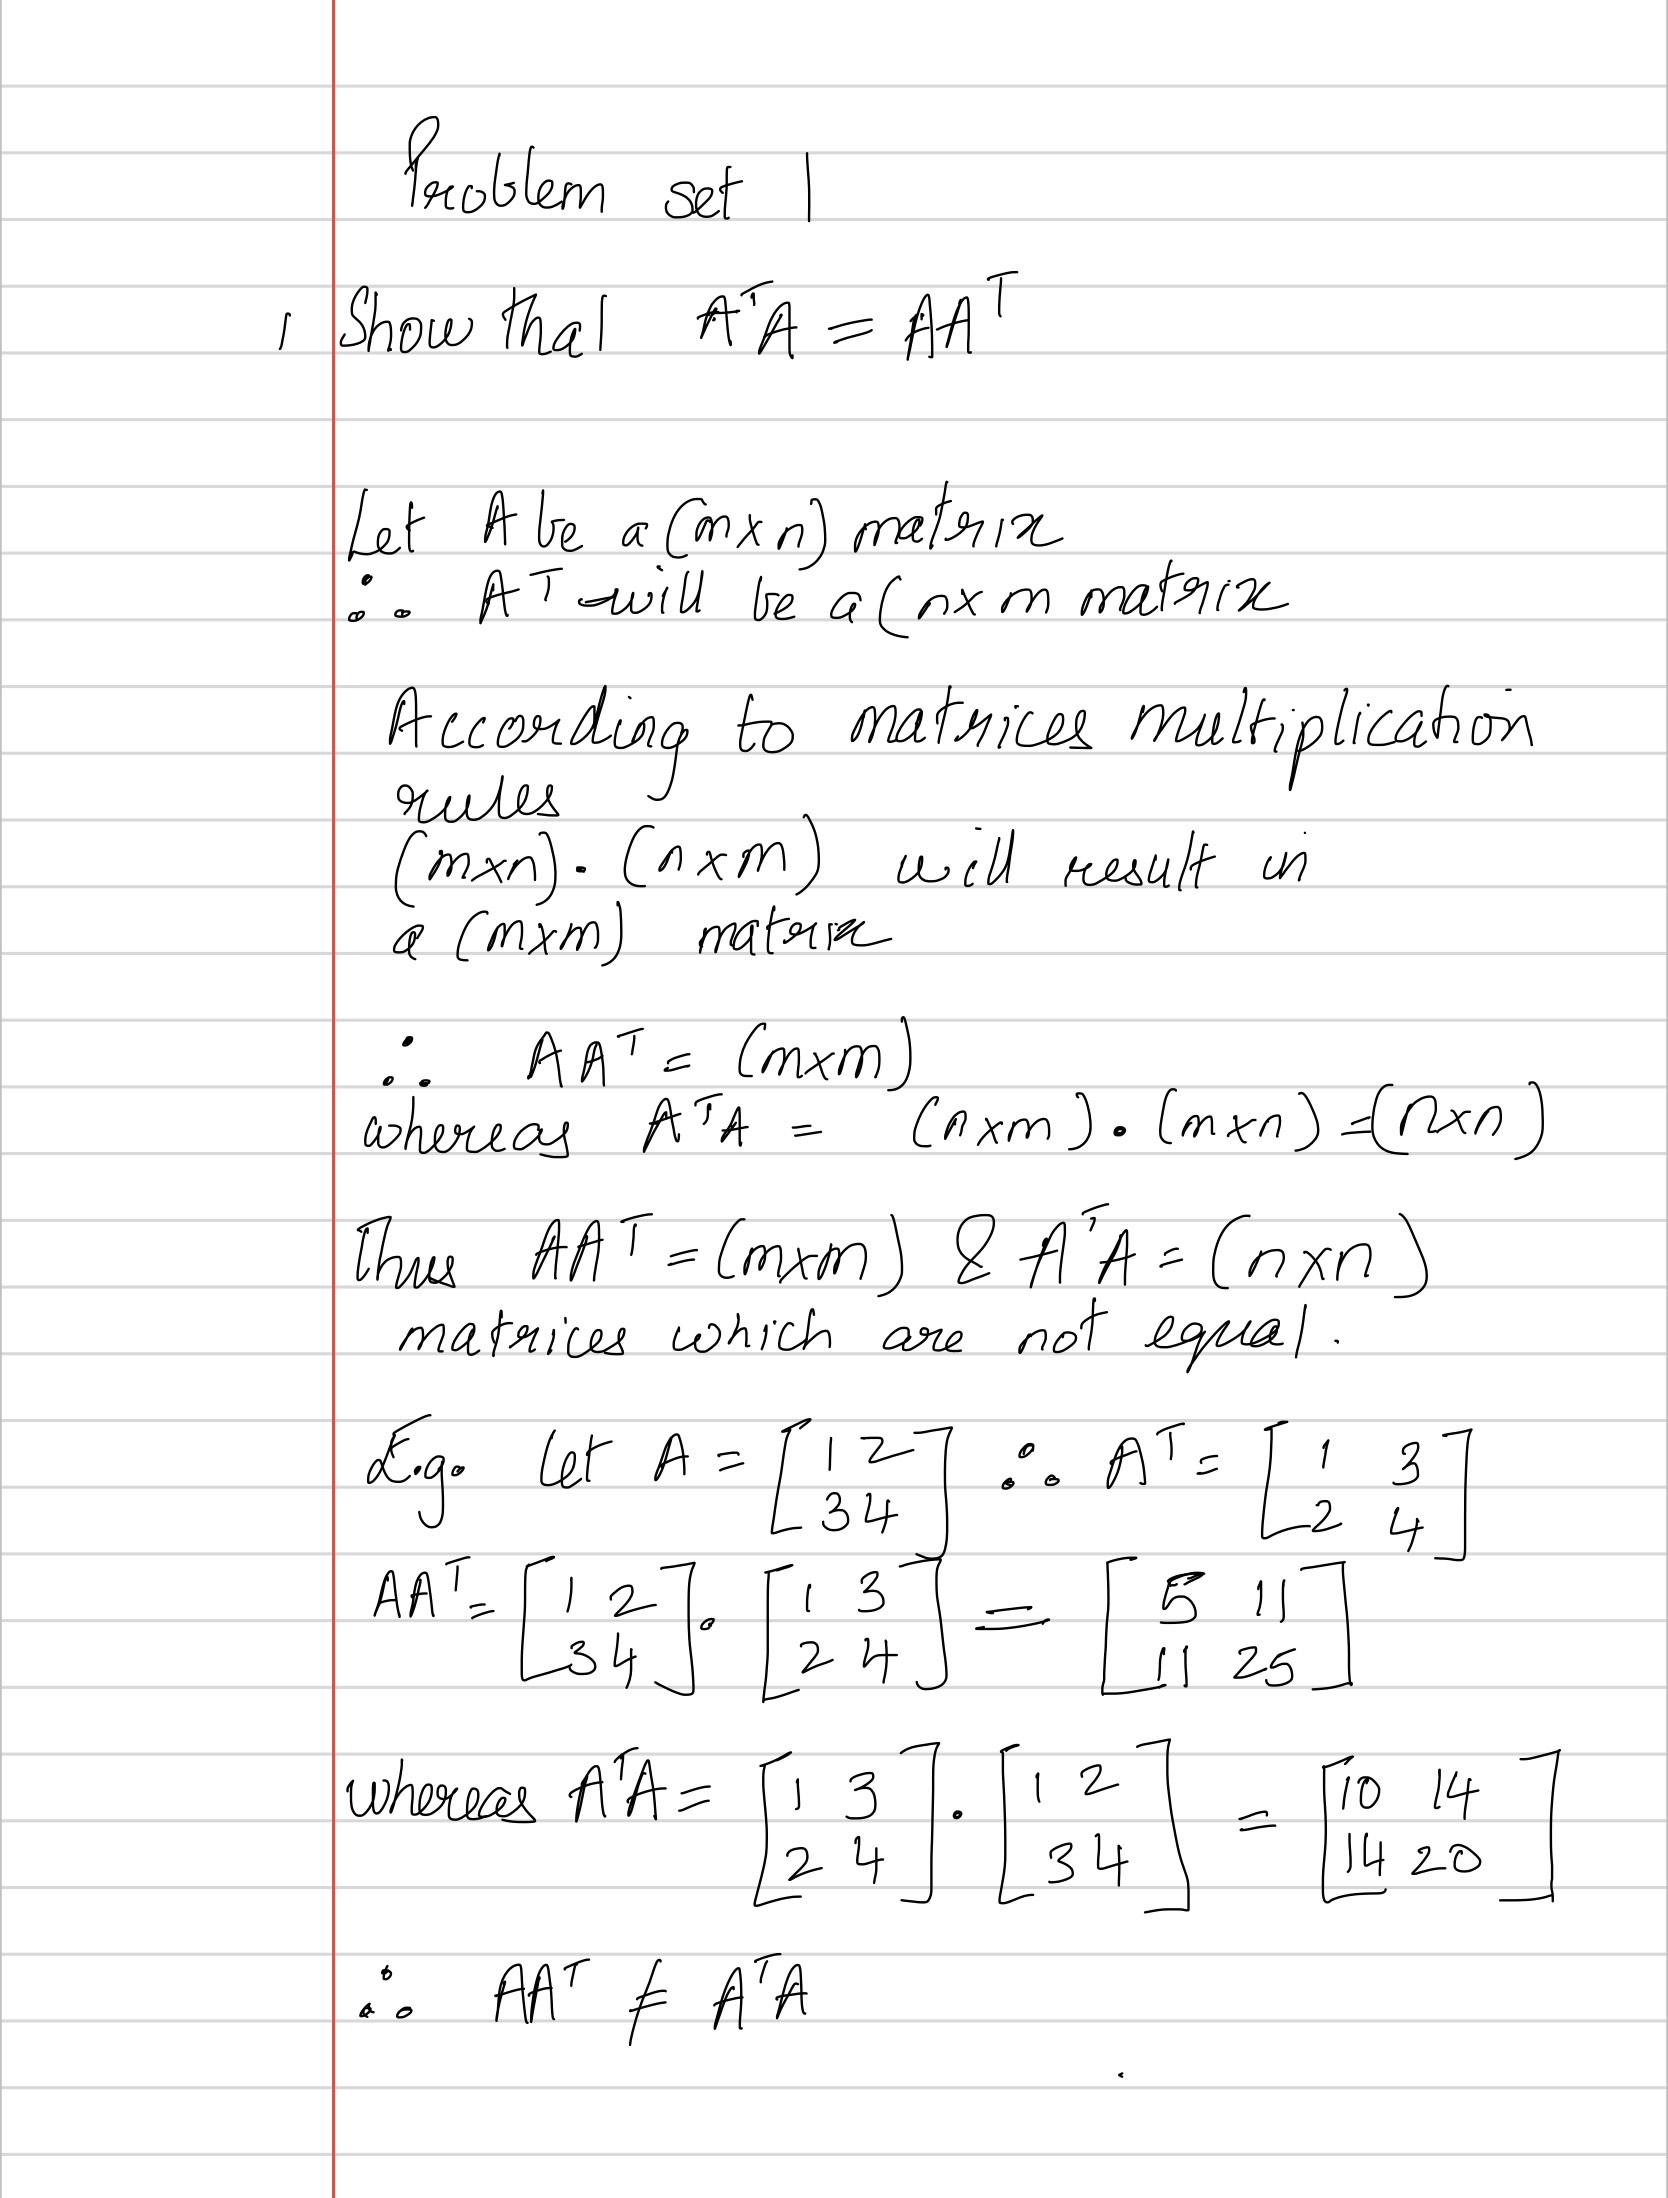 Problem set 1
1 Show that AᵀA = AAᵀ
Let A be a (m×n) matrix
∴ Aᵀ will be a (n×m matrix
According to matrices multiplication
rules
(m×n)·(n×m) will result in
a (m×m) matrix
∴ AAᵀ = (m×m)
whereas AᵀA = (n×m)·(m×n) = (n×n)
Thus AAᵀ = (m×m) & AᵀA = (n×n)
matrices which are not equal.
E.g. Let A = [1 2 ∴ Aᵀ = [1 3
3 4] 2 4]
AAᵀ = [1 2 · [1 3 = [5 11
3 4] 2 4] 11 25]
whereas AᵀA = [1 3 · [1 2 = [10 14
2 4] 3 4] 14 20]
∴ AAᵀ ≠ AᵀA